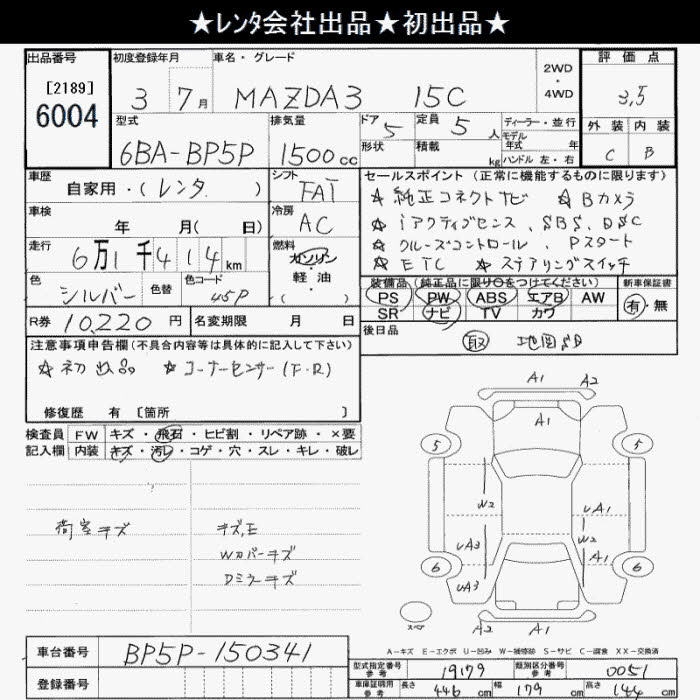 ★レンタ会社出品★初出品★
出品番号 初度登録年月 車名・グレード 評価点
[2189]
6004
3 7月 MAZDA3 15C 2WD ・ 4WD 3,5
型式 排気量 ドア 定員 ディーラー・並行 外装 内装
6BA-BP5P 1500cc 5 5人 モデル年式 年
形状 積載 kg ハンドル 左・右 C B
車歴 シフト セールスポイント (正常に機能するものに限ります)
自家用・(レンタ ) FAT ★純正コネクトナビ ★Bカメラ
車検 冷房
年 月( 日) AC ★iアクティブセンス、SBS、DSC
走行 燃料 ★クルーズコントロール、Pスタート
6万1千414km ガソリン・軽・油 ( ) ★ETC ★ステアリングスイッチ
色 色替 色コード 装備品 (純正品に限り○をつけてください) 新車保証書
シルバー 45P PS PW ABS エアB AW 有・無
SR ナビ TV カワ
R券 10,220円 名変期限 月 日 後日品
取 地図SD
注意事項申告欄(不具合内容等は具体的に記入して下さい)
★初出品 ★コーナーセンサー(F・R)
修復歴 有 [箇所 ]
検査員 FW キズ・飛石・ヒビ割・リペア跡・×要
記入欄 内装 キズ・汚レ・コゲ・穴・スレ・キレ・破レ
荷室キズ キズ,E
Wカバーキズ
Dミラーキズ
A1 A2
A1
5 5
W2 UA1
W2
UA3 A1
6 6
UA3
A2 A1
スペア
A-キズ E-エクボ U-凹み W-補修跡 S-サビ C-腐食 XX-交換済
車台番号 BP5P-150341
型式指定番号 参考 19179 類別区分番号 参考 0051
登録番号
車庫証明用 参考 長さ 446cm 幅 179cm 高さ 144cm